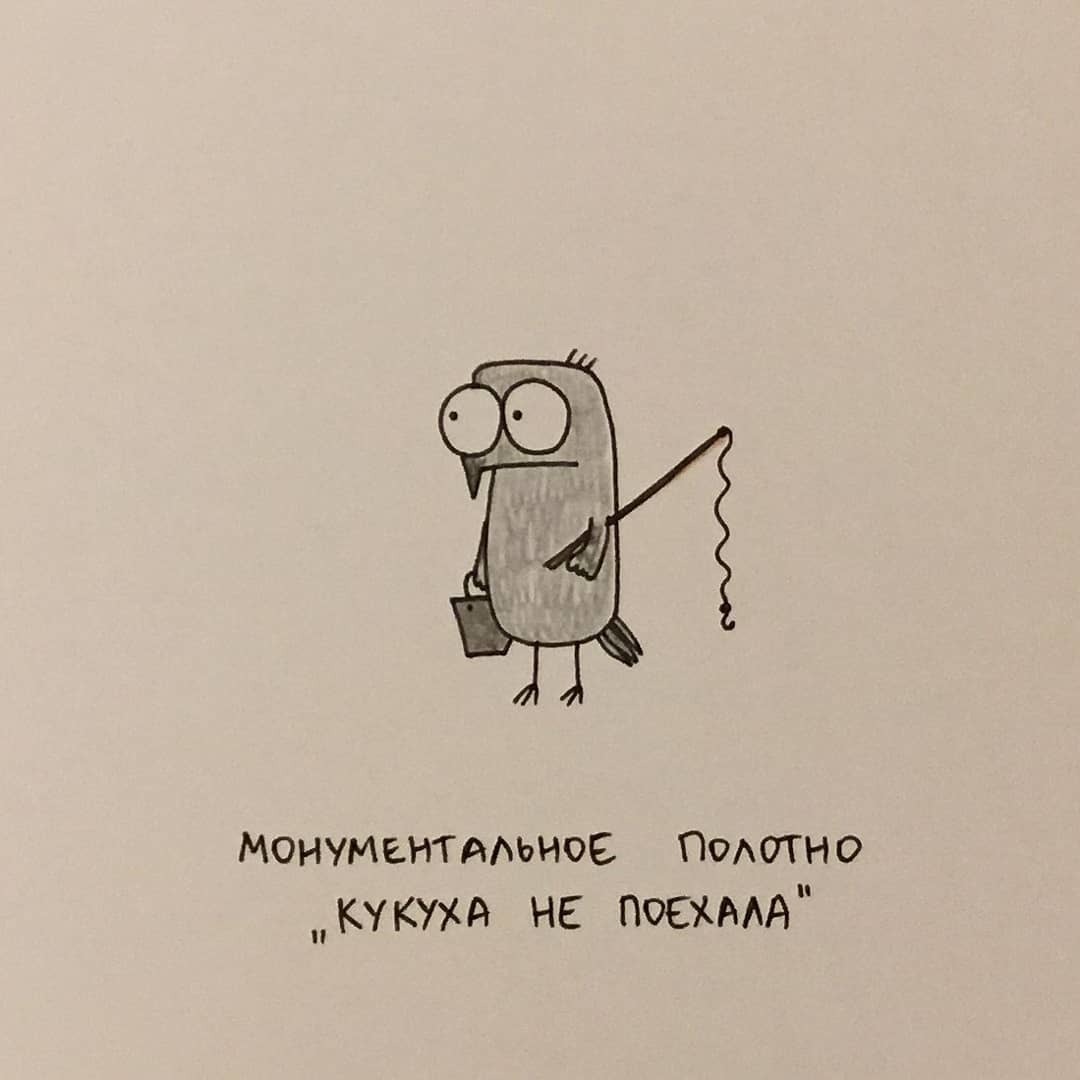 МОНУМЕНТАЛЬНОЕ ПОЛОТНО
„КУКУХА НЕ ПОЕХАЛА"